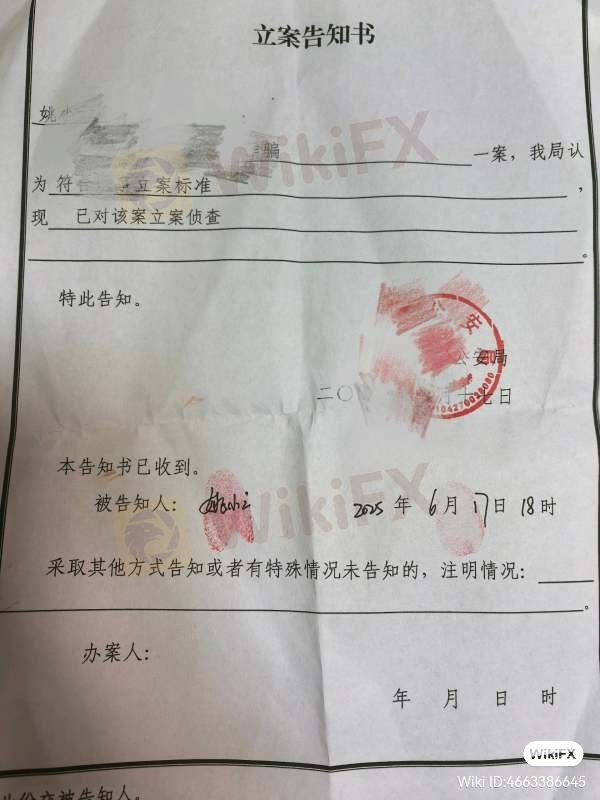 立案告知书
姚小
骗 一案，我局认
为 符合 立案标准 ，
现 已对该案立案侦查
。
特此告知。
公安
公安局
二〇 月十七日
本告知书已收到。
被告知人： 2025 年 6 月 17 日 18 时
采取其他方式告知或者有特殊情况未告知的，注明情况：
。
办案人：
年 月 日 时
此份交被告知人。
WikiFX
WikiFX
WikiFX
Wiki ID:4663386645